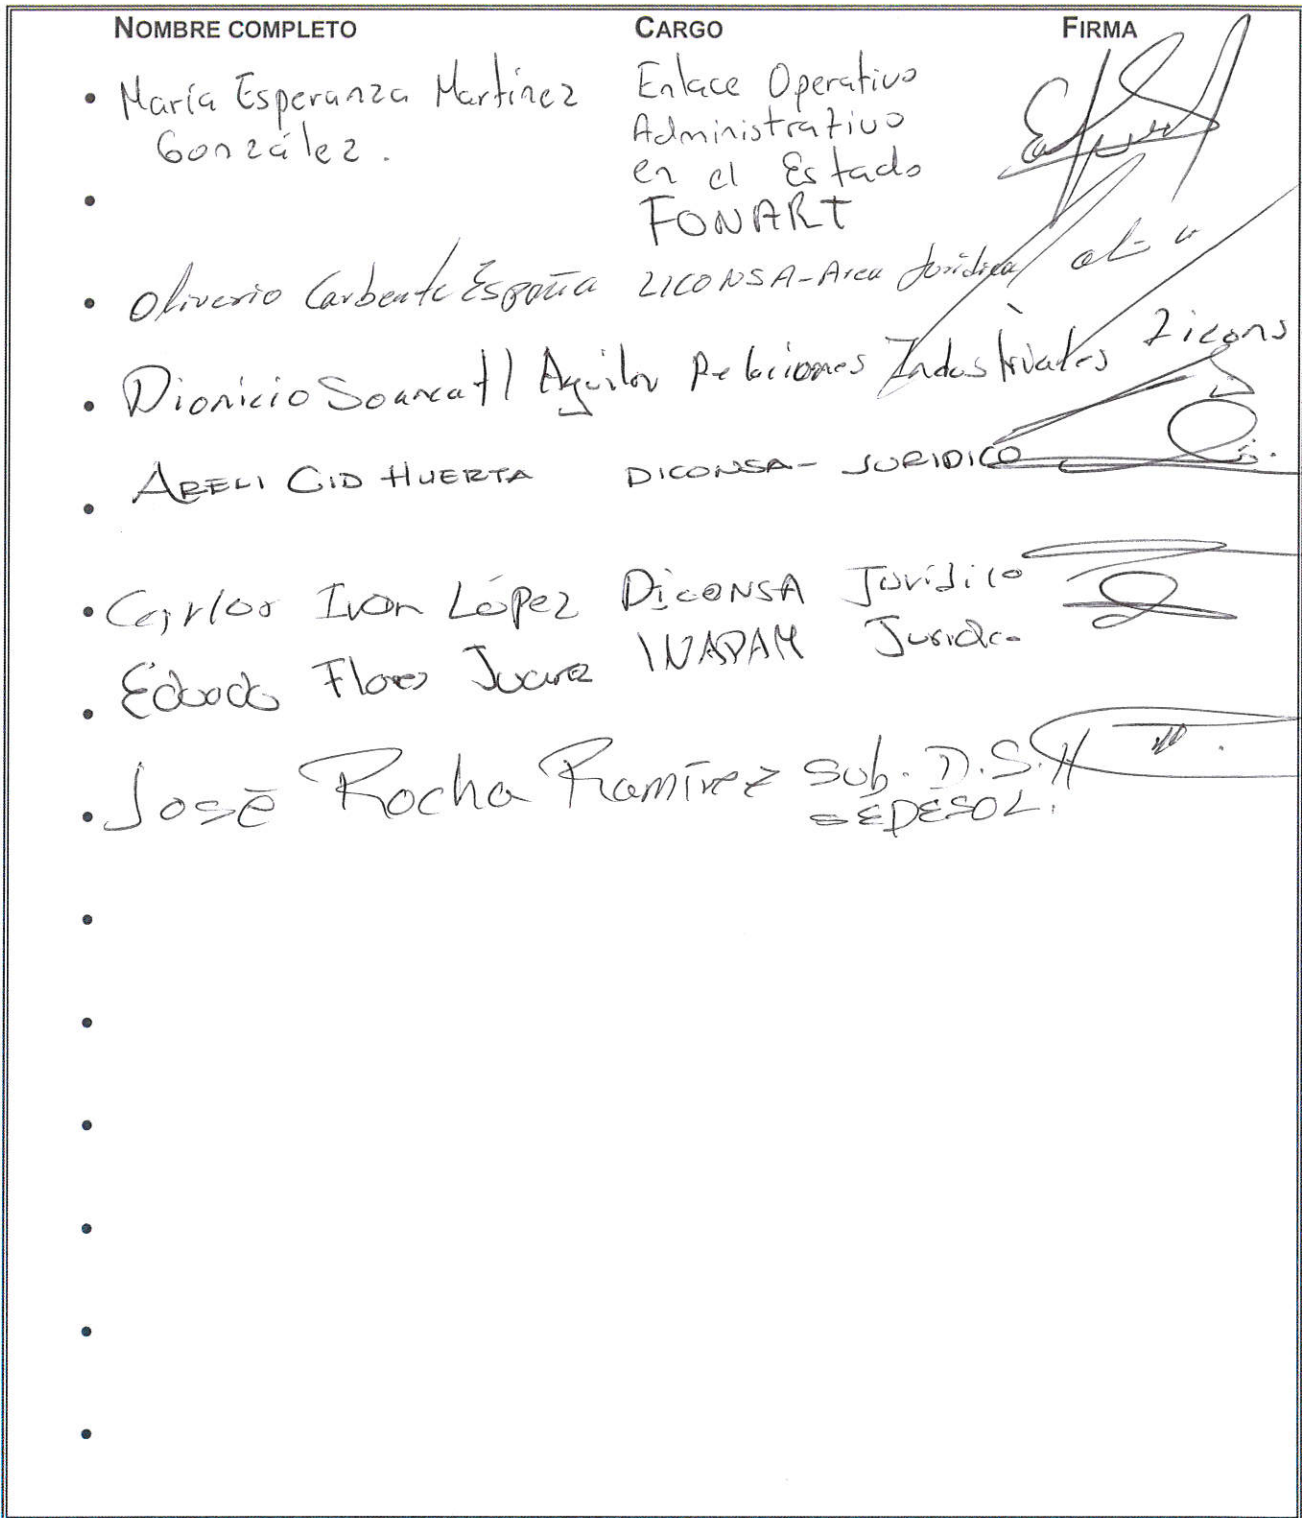 NOMBRE COMPLETO CARGO FIRMA
• María Esperanza Martínez Enlace Operativo
González. Administrativo
en el Estado
• FONART
• Oliverio España LICONSA-Area Jurídica
• Dionicio Aguilar Relaciones Industriales Licons
ARELI CID HUERTA DICONSA- JURIDICO
•
• Carlos Ivan López DICONSA Jurídico
• Eduardo Flores Juarez INAPAM Juridico
• José Rocha Ramírez Sub. D.S.H
SEDESOL.
•
•
•
•
•
•